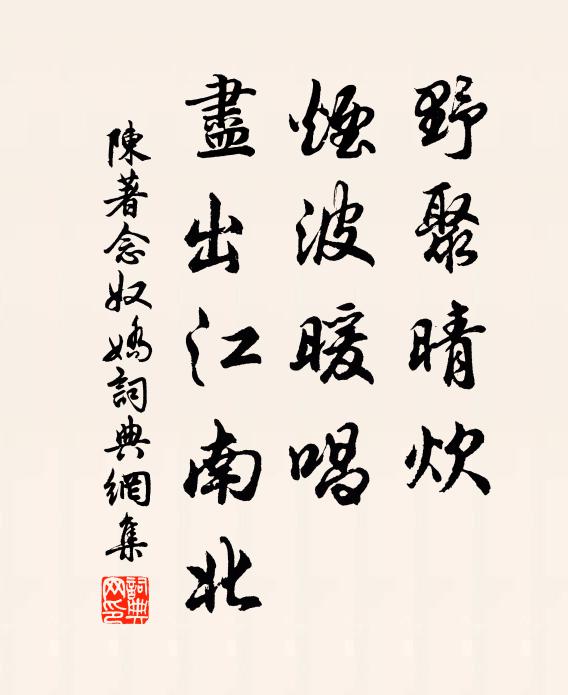 野聚晴炊
煙波暖唱
盡出江南北
陳著念奴嬌詞典網集
詞典网印